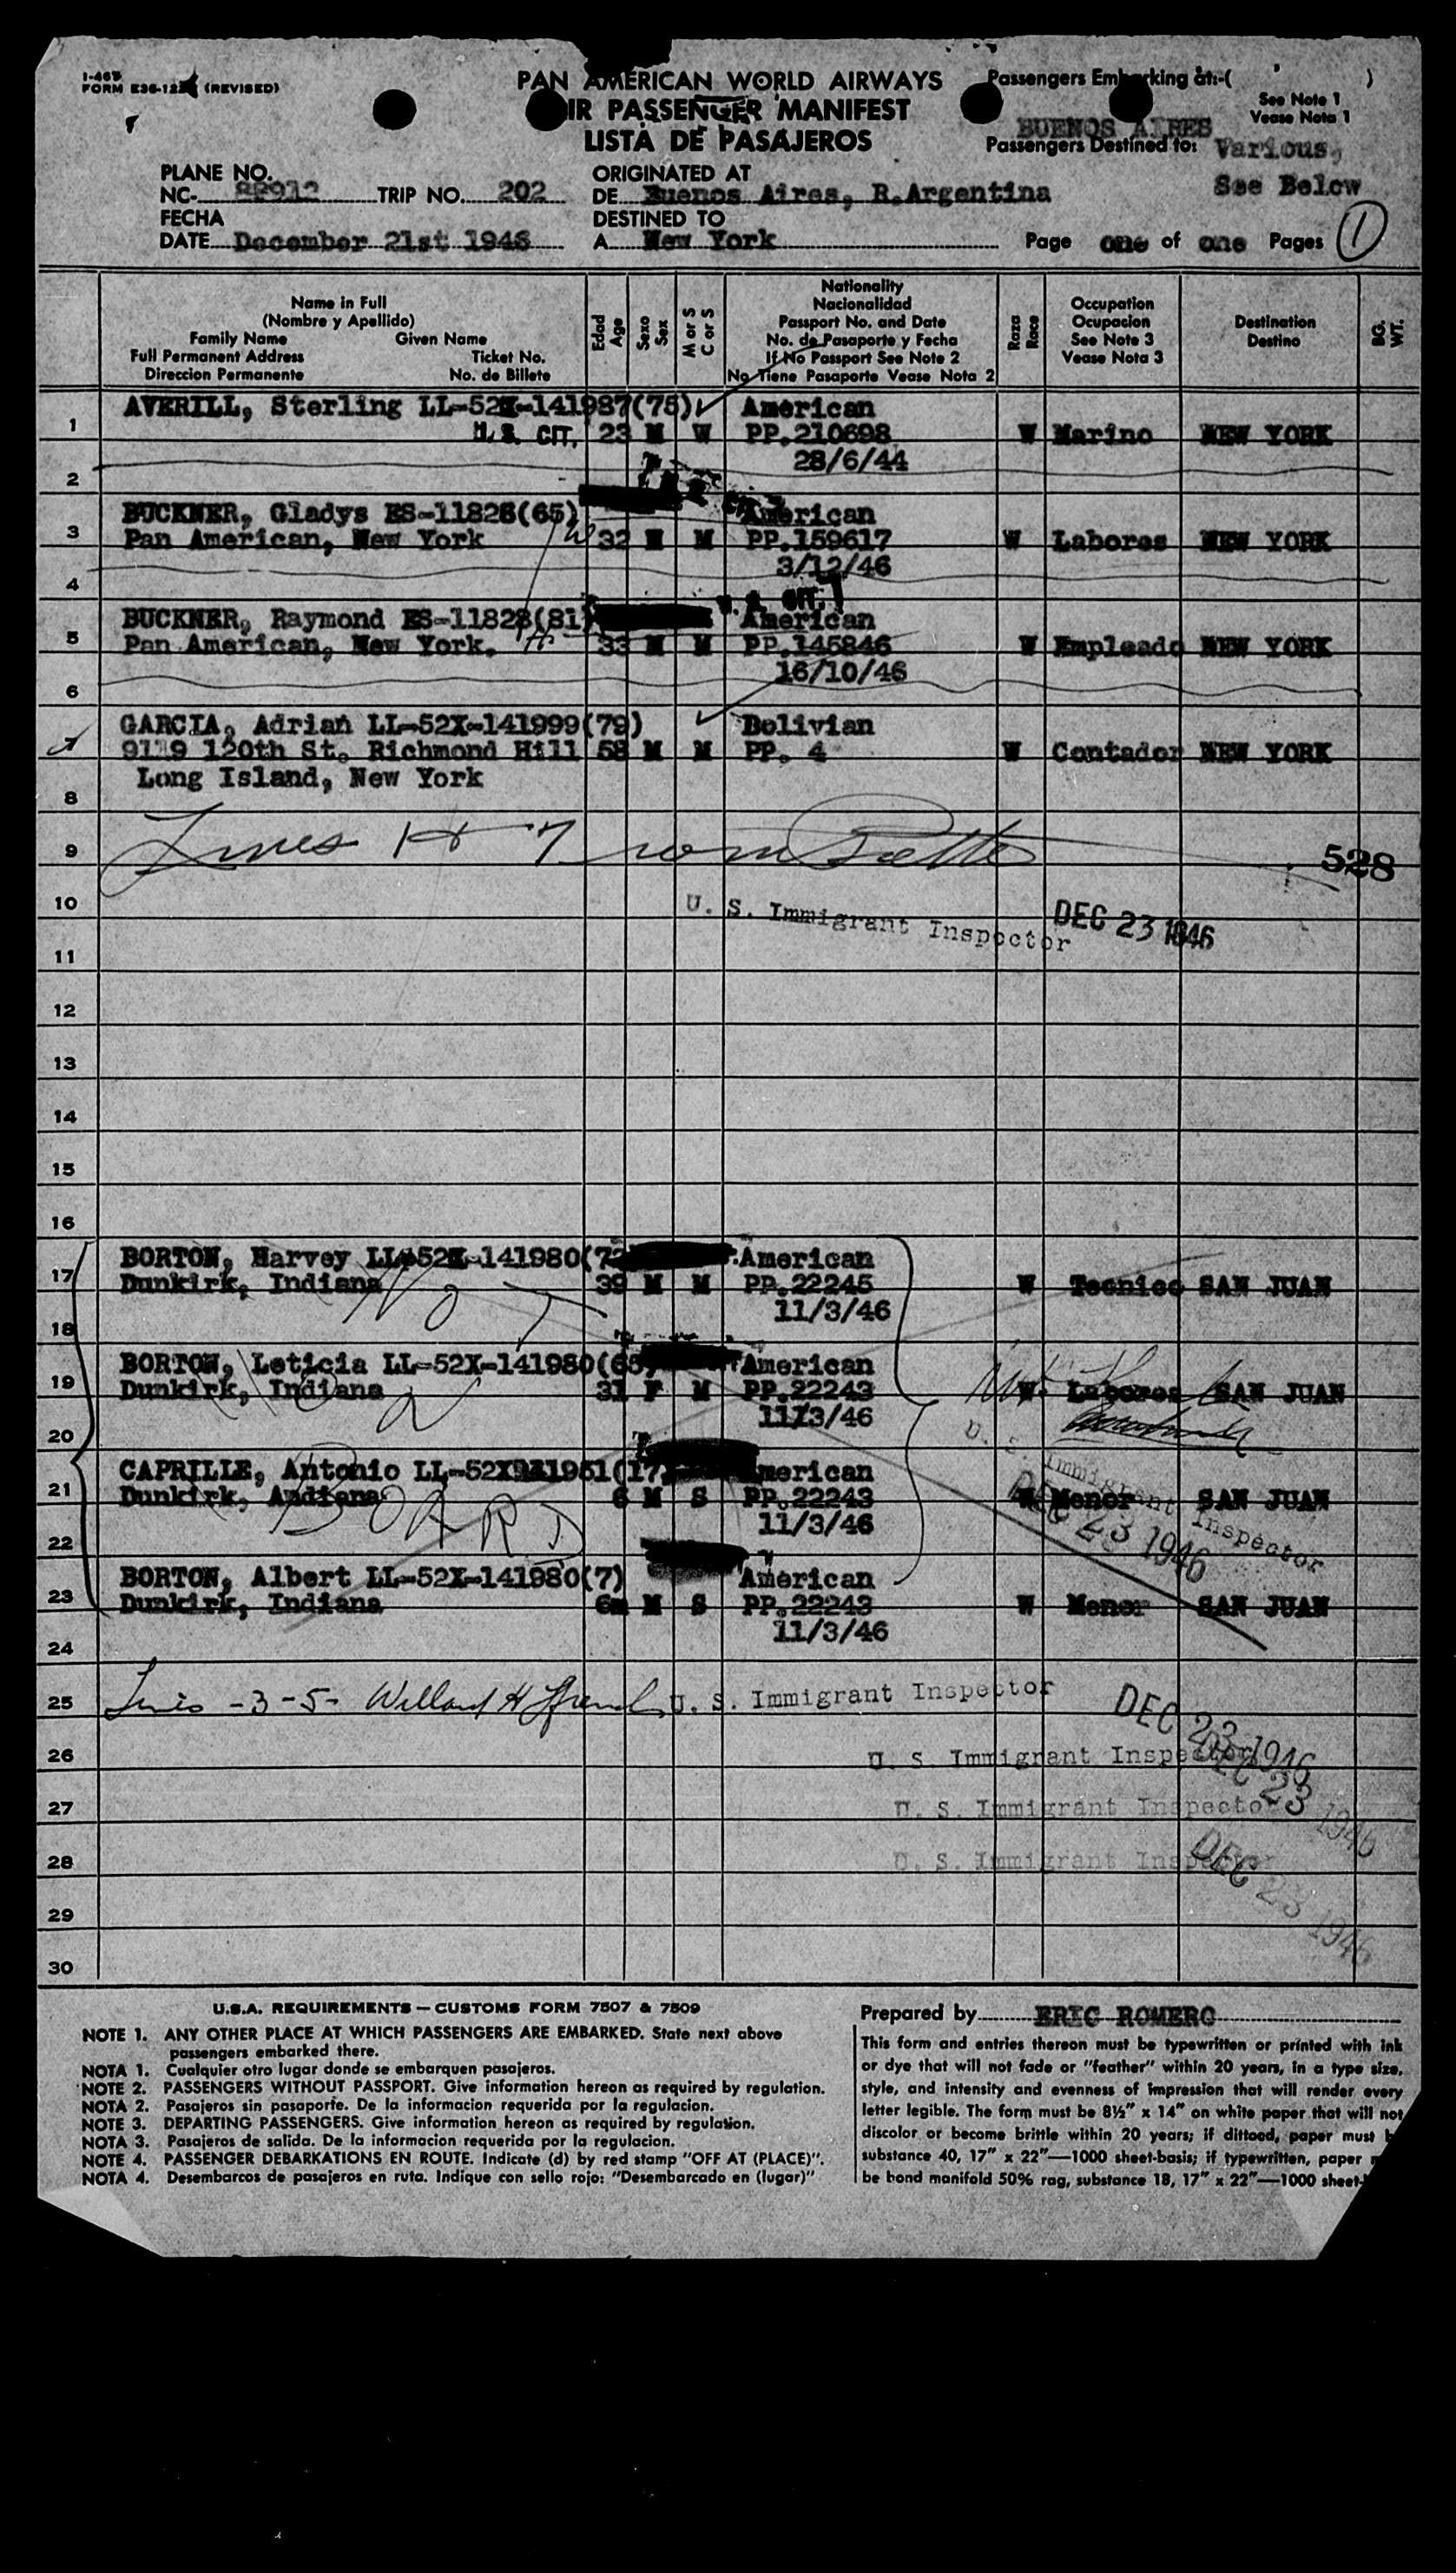 I-466
FORM E36-122 (REVISED)
PAN AMERICAN WORLD AIRWAYS
IR PASSENGER MANIFEST
LISTA DE PASAJEROS
Passengers Embarking at:-( )
See Note 1
Vease Nota 1
BUENOS AIRES
Passengers Destined to: Various,
See Below
PLANE NO.
NC- 88912 TRIP NO. 202
FECHA
DATE December 21st 1946
ORIGINATED AT
DE Buenos Aires, R.Argentina
DESTINED TO
A New York
Page one of one Pages 1
Name in Full
(Nombre y Apellido)
Family Name Given Name
Full Permanent Address Ticket No.
Direccion Permanente No. de Billete
Edad
Age
Sexo
Sex
M or S
C or S
Nationality
Nacionalidad
Passport No. and Date
No. de Pasaporte y Fecha
If No Passport See Note 2
No Tiene Pasaporte Vease Nota 2
Raza
Race
Occupation
Ocupacion
See Note 3
Vease Nota 3
Destination
Destino
BG.
WT.
AVERILL, Sterling LL-52X-141987(75) American
1 U.S. CIT. 23 M W PP.210698 W Marino NEW YORK
28/6/44
2
BUCKNER, Gladys ES-11828(65) American
3 Pan American, New York 32 M M PP.159617 W Labores NEW YORK
3/12/46
4
BUCKNER, Raymond ES-11828(81) American
5 Pan American, New York. 33 M M PP.145846 W Empleado NEW YORK
16/10/46
6
GARCIA, Adrian LL-52X-141999(79) Bolivian
7 9119 120th St. Richmond Hill 58 M M PP. 4 W Contador NEW YORK
Long Island, New York
8
9 Lines 1 + 7 528
10 U. S. Immigrant Inspector DEC 23 1946
11
12
13
14
15
16
BORTON, Harvey LL-52X-141980(72 American
17 Dunkirk, Indiana 39 M M PP.22245 W Tecnico SAN JUAN
NOT
11/3/46
18
BORTON, Leticia LL-52X-141980(65) American
19 Dunkirk, Indiana 31 F M PP.22243 W Labores SAN JUAN
11/3/46
20
U. S. Immigrant Inspector
CAPRILLE, Antonio LL-52X-141951(17) American
21 Dunkirk, Indiana 6 M S PP.22243 W Menor SAN JUAN
BOARD
11/3/46
DEC 23 1946
22
BORTON, Albert LL-52X-141980(7) American
23 Dunkirk, Indiana 6m M S PP.22243 W Menor SAN JUAN
11/3/46
24
25 Lines -3-5- Willard H U. S. Immigrant Inspector DEC 23 1946
26 U. S. Immigrant Inspector DEC 23 1946
27 U. S. Immigrant Inspector
28 U. S. Immigrant Inspector DEC 23 1946
29
30
U.S.A. REQUIREMENTS — CUSTOMS FORM 7507 & 7509
NOTE 1. ANY OTHER PLACE AT WHICH PASSENGERS ARE EMBARKED. State next above
passengers embarked there.
NOTA 1. Cualquier otro lugar donde se embarquen pasajeros.
NOTE 2. PASSENGERS WITHOUT PASSPORT. Give information hereon as required by regulation.
NOTA 2. Pasajeros sin pasaporte. De la informacion requerida por la regulacion.
NOTE 3. DEPARTING PASSENGERS. Give information hereon as required by regulation.
NOTA 3. Pasajeros de salida. De la informacion requerida por la regulacion.
NOTE 4. PASSENGER DEBARKATIONS EN ROUTE. Indicate (d) by red stamp "OFF AT (PLACE)".
NOTA 4. Desembarcos de pasajeros en ruta. Indique con sello rojo: "Desembarcado en (lugar)"
Prepared by ERIC ROMERO
This form and entries thereon must be typewritten or printed with ink
or dye that will not fade or "feather" within 20 years, in a type size,
style, and intensity and evenness of impression that will render every
letter legible. The form must be 8½" x 14" on white paper that will not
discolor or become brittle within 20 years; if dittoed, paper must b
substance 40, 17" x 22"—1000 sheet-basis; if typewritten, paper
be bond manifold 50% rag, substance 18, 17" x 22"—1000 sheet-